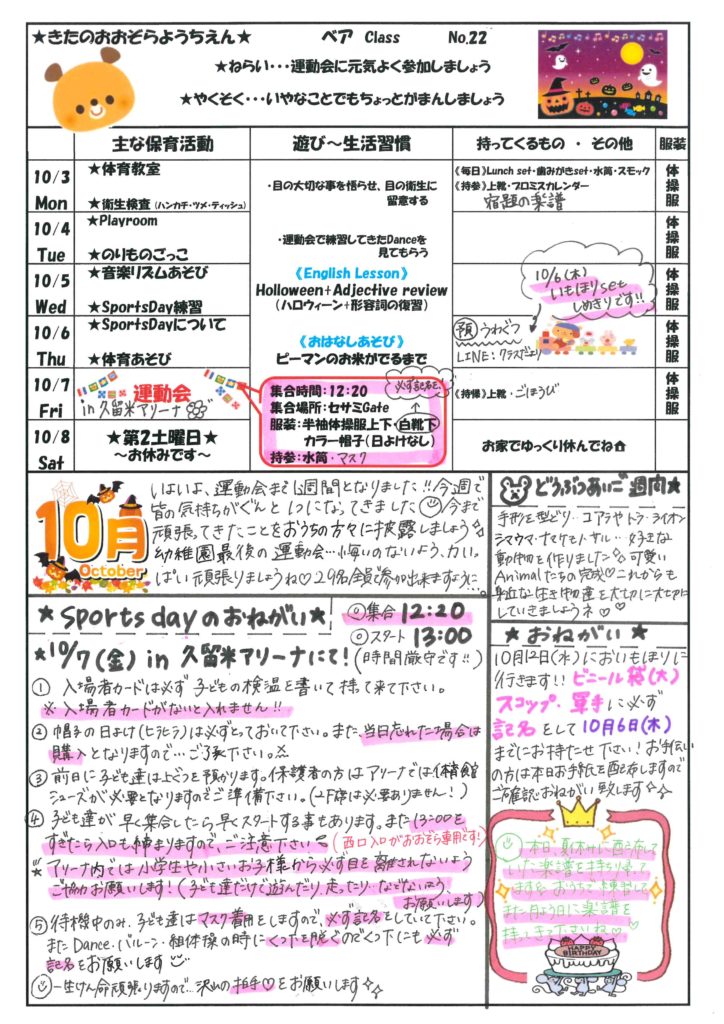 ★きたのおおぞらようちえん★ ベア Class No.22
★ねらい・・・運動会に元気よく参加しましょう
★やくそく・・・いやなことでもちょっとがまんしましょう
主な保育活動 遊び～生活習慣 持ってくるもの ・ その他 服装
10/3 Mon
★体育教室
★衛生検査 (ハンカチ・ツメ・ティッシュ)
・目の大切な事を悟らせ、目の衛生に
留意する
《毎日》Lunch set・歯みがきset・水筒・スモック
《持参》上靴・プロミスカレンダー
宿題の楽譜
体操服
10/4 Tue
★Playroom
★のりものごっこ
・運動会で練習してきたDanceを
見てもらう
体操服
10/5 Wed
★音楽リズムあそび
★SportsDay練習
《English Lesson》
Holloween+Adjective review
(ハロウィーン+形容詞の復習)
10/6(木)
いもほりset
しめきりです!!
体操服
10/6 Thu
★SportsDayについて
★体育あそび
《おはなしあそび》
ピーマンのお米ができるまで
預 うわぐつ
LINE:クラスだより
体操服
10/7 Fri
運動会
in 久留米アリーナ
集合時間:12:20
必ず記名を
集合場所:セサミGate
服装:半袖体操服上下・白靴下
カラー帽子(日よけなし)
持参:水筒・マスク
《持帰》上靴・ごほうび
体操服
10/8 Sat
★第2土曜日★
～お休みです～
お家でゆっくり休んでね
10月
October
いよいよ、運動会まで1週間となりました!!今週で
皆の気持ちがぐんと1つになってきました 今まで
頑張ってきたことをおうちの方々に披露しましょう
幼稚園最後の運動会…悔いのないよう、力いっ
ぱい頑張りましょうね♡29名全員で参加出来ますように…
どうぶつあいご週間★
手形を型どり…コアラやトラ・ライオン
シマウマ・ナマケモノ・サル…好きな
動物を作りました 可愛い
Animalたちの完成♡これからも
身近な生き物達を大切に大切に
していきましょうネ♡♡
★Sports dayのおねがい★
◎集合 12:20
◎スタート 13:00
★10/7(金) in 久留米アリーナにて!(時間厳守です!!)
① 入場者カードは必ず子どもの検温を書いて持って来て下さい。
※入場者カードがないと入れません!!
② 帽子の日よけ(ヒラヒラ)は必ずとっておいて下さい。また、当日忘れた場合は
購入となりますので…ご了承下さい。
③ 前日に子ども達は上ぐつを預かります。保護者の方はアリーナでは体育館
シューズが必要となりますのでご準備下さい。(2F席は必要ありません!)
④ 子ども達が早く集合したら早くスタートする事もあります。また13:00を
すぎたら入口も締まりますので、ご注意下さい
(西口入口がおおぞら専用です!)
アリーナ内では小学生や小さいお子様から必ず目を離されないよう
ご協力お願いします!(子ども達だけで遊んだり、走ったり…などないよう
お願いします)
⑤ 待機中のみ、子ども達はマスク着用をしますので、必ず記名をしていて下さい。
またDance・バルーン・組体操の時にくつ下を脱ぐのでくつ下にも必ず
記名をお願いします
一生けん命頑張りますので…沢山の拍手♡をお願いします
★おねがい★
10月12日(水)においもほりに
行きます!! ビニール袋(大)
スコップ・軍手に必ず
記名をして10月6日(木)
までにお持たせ下さい!お手伝い
の方は本日お手紙を配布しますので
ご確認おねがい致します
本日、夏休みに配布して
いた楽譜を持ち帰って
ますので おうちで練習して
また月よう日に楽譜を
持ってきて下さいね♡
HAPPY
BIRTHDAY